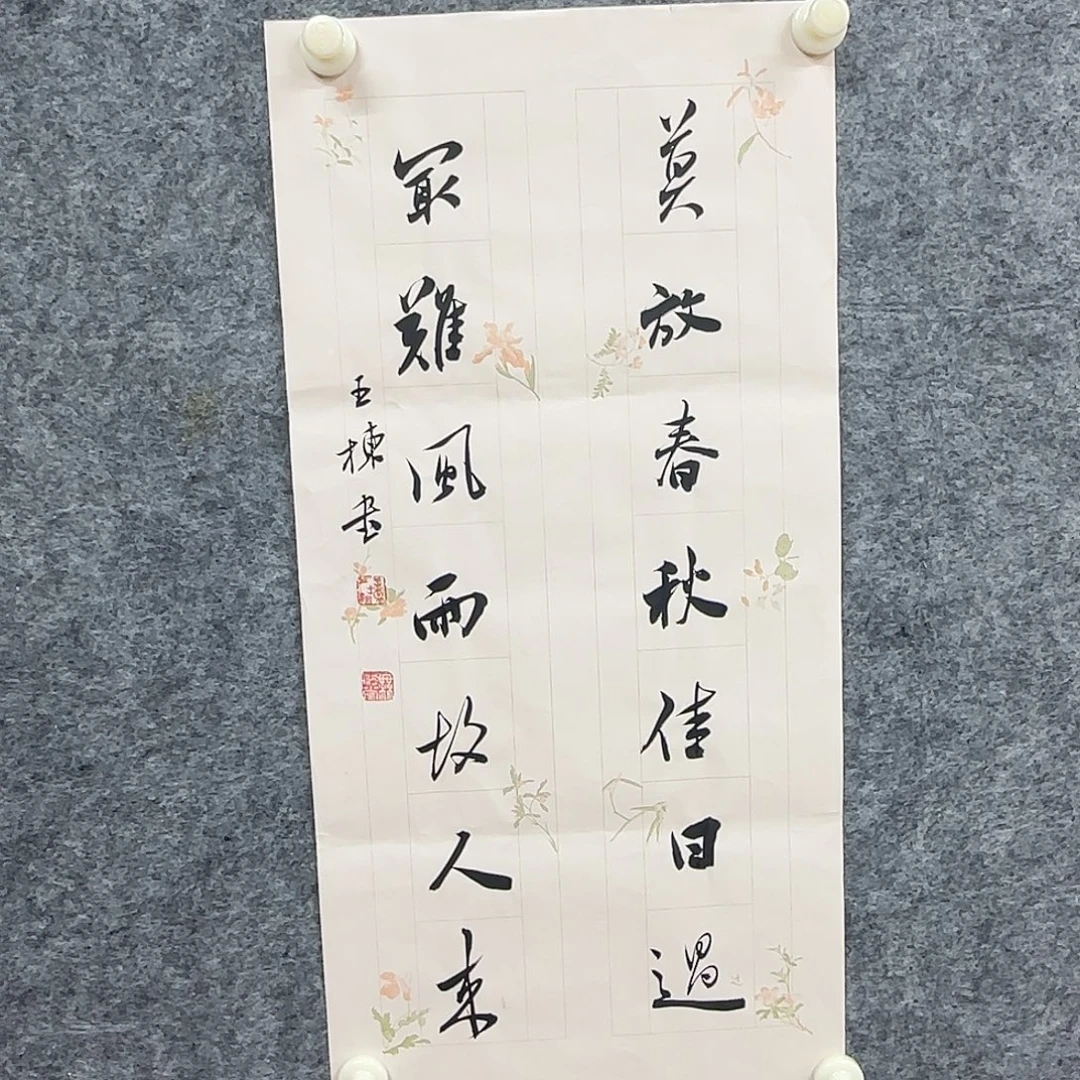 莫放春秋佳日過
最難風雨故人來
王棟书